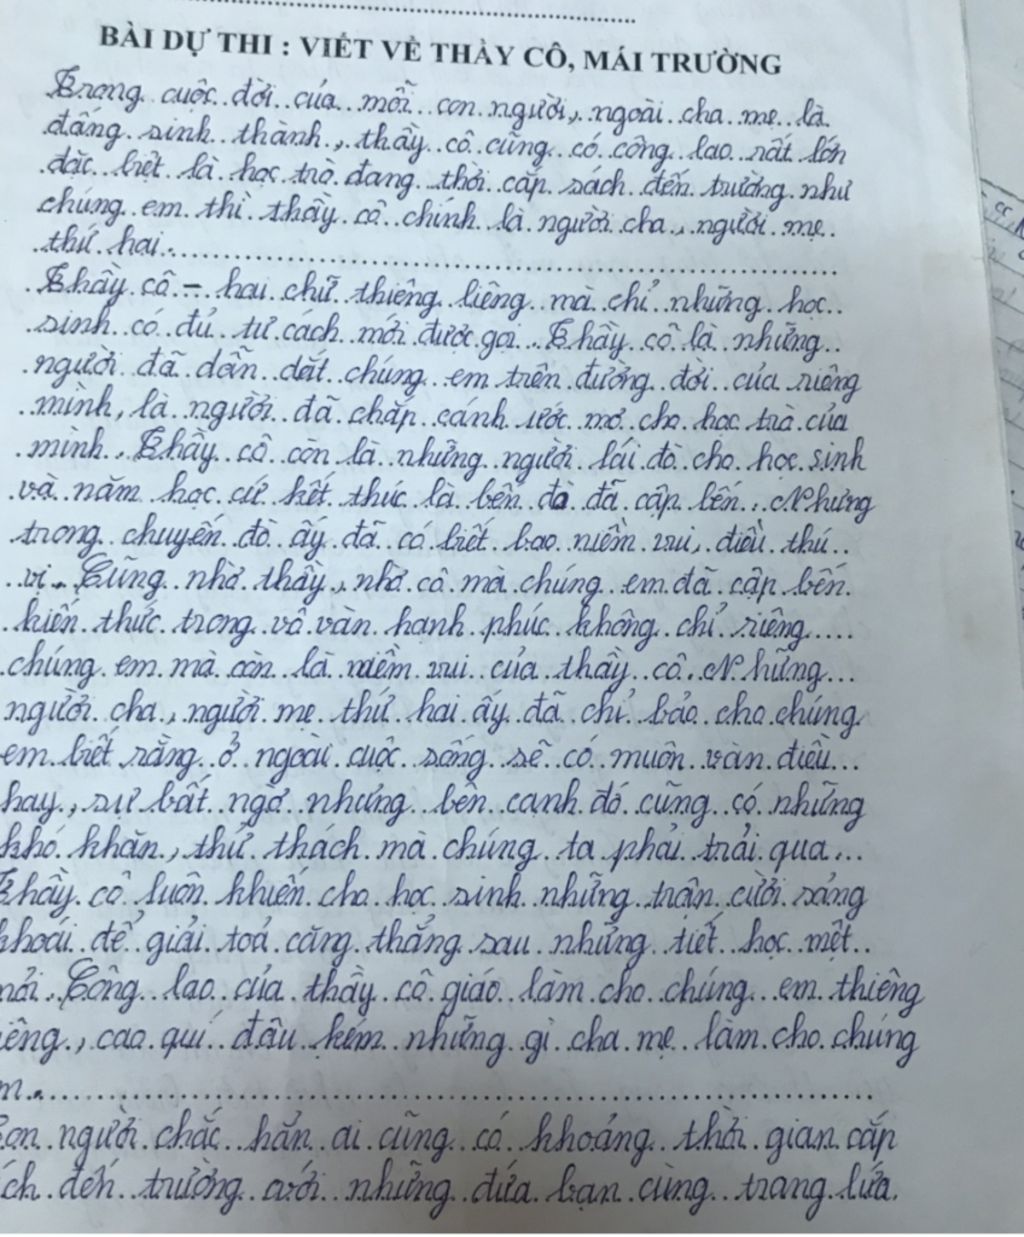 BÀI DỰ THI : VIẾT VỀ THẦY CÔ, MÁI TRƯỜNG
Trong cuộc đời của mỗi con người, ngoài cha mẹ là
đấng sinh thành, thầy cô cũng có công lao rất lớn
đặc biệt là học trò đang thời cắp sách đến trường như
chúng em thì thầy cô chính là người cha, người mẹ
thứ hai.
Thầy cô - hai chữ thiêng liêng mà chỉ những học
sinh có đủ tư cách mới được gọi. Thầy cô là những
người đã dẫn dắt chúng em trên đường đời của riêng
mình, là người đã chắp cánh ước mơ cho học trò của
mình. Thầy cô còn là những người lái đò cho học sinh
và năm học cứ kết thúc là bến đò đã cập bến. Nhưng
trong chuyến đò ấy đã có biết bao niềm vui, điều thú
vị. Cũng nhờ thầy, nhờ cô mà chúng em đã cập bến
kiến thức trong vô vàn hạnh phúc không chỉ riêng
chúng em mà còn là niềm vui của thầy cô. Những
người cha, người mẹ thứ hai ấy đã chỉ bảo cho chúng
em biết rằng ở ngoài cuộc sống sẽ có muôn vàn điều
hay, sự bất ngờ nhưng bên cạnh đó cũng có những
khó khăn, thử thách mà chúng ta phải trải qua.
Thầy cô luôn khiến cho học sinh những trận cười sảng
khoái để giải toả căng thẳng sau những tiết học mệt
mỏi. Công lao của thầy cô giáo làm cho chúng em thiêng
iêng, cao quí đâu kém những gì cha mẹ làm cho chúng
m.
on người chắc hẳn ai cũng có khoảng thời gian cắp
ch đến trường với những đứa bạn cùng trang lứa.